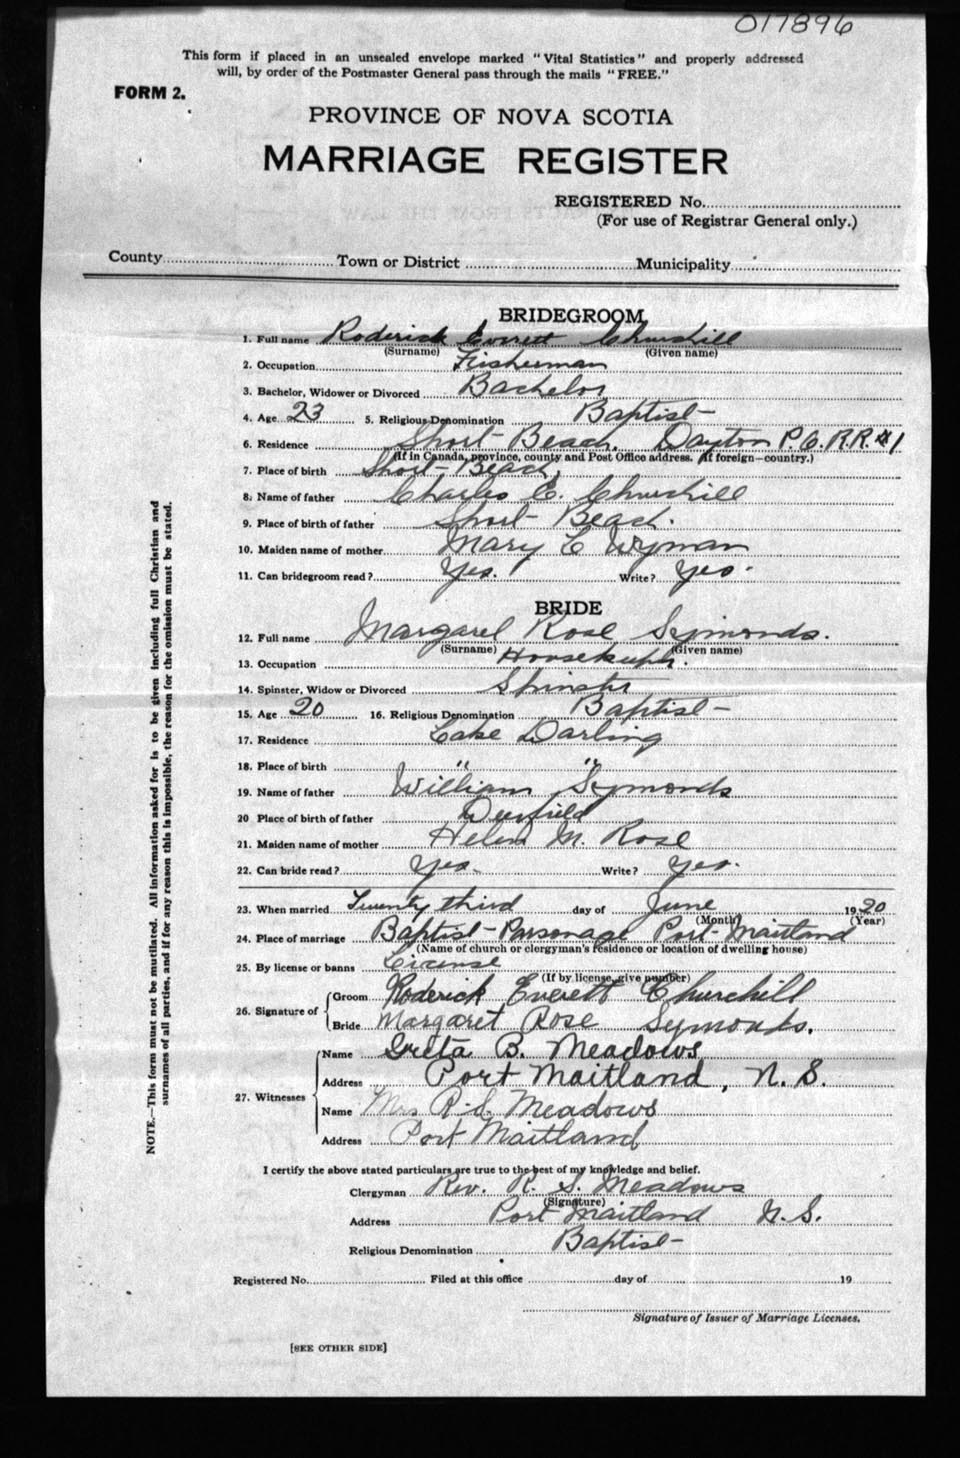 017896
This form if placed in an unsealed envelope marked "Vital Statistics" and properly addressed
will, by order of the Postmaster General pass through the mails "FREE."
FORM 2.
PROVINCE OF NOVA SCOTIA
MARRIAGE REGISTER
REGISTERED No.
(For use of Registrar General only.)
County Town or District Municipality
BRIDEGROOM
1. Full name Roderick Everett Churchill
(Surname) (Given name)
2. Occupation Fisherman
3. Bachelor, Widower or Divorced Bachelor
4. Age 23 5. Religious Denomination Baptist
6. Residence Short Beach, Dayton P.O. R.R. #1
(If in Canada, province, county and Post Office address. If foreign—country.)
7. Place of birth Short Beach,
8. Name of father Charles E. Churchill
9. Place of birth of father Short Beach.
10. Maiden name of mother Mary E Wyman
11. Can bridegroom read? Yes. Write? Yes.
BRIDE
12. Full name Margaret Rose Symonds.
(Surname) (Given name)
13. Occupation Housekeeper.
14. Spinster, Widow or Divorced Spinster
15. Age 20 16. Religious Denomination Baptist
17. Residence Lake Darling
18. Place of birth " "
19. Name of father William Symonds
20 Place of birth of father Deerfield
21. Maiden name of mother Helen M. Rose
22. Can bride read? Yes. Write? Yes.
23. When married Twenty third day of June 1930
(Month) (Year)
24. Place of marriage Baptist Parsonage Port Maitland
(Name of church or clergyman's residence or location of dwelling house)
25. By license or banns License
(If by license, give number)
26. Signature of Groom Roderick Everett Churchill
Bride Margaret Rose Symonds.
27. Witnesses Name Greta B. Meadows
Address Port Maitland, N.S.
Name Mrs R.S. Meadows
Address Port Maitland
I certify the above stated particulars are true to the best of my knowledge and belief.
Clergyman Rev. R. S. Meadows
(Signature)
Address Port Maitland N.S.
Religious Denomination Baptist
Registered No. Filed at this office day of 19
Signature of Issuer of Marriage Licenses.
[SEE OTHER SIDE]
NOTE.—This form must not be mutilated. All information asked for is to be given including full Christian and
surnames of all parties, and if for any reason this is impossible, the reason for the omission must be stated.